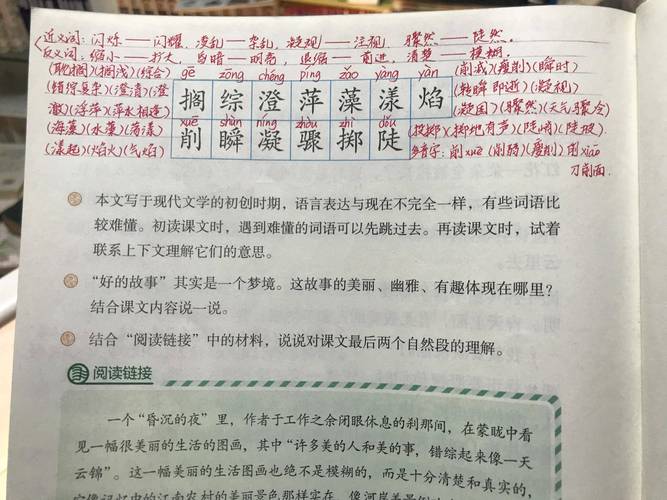 近义词:闪烁——闪耀.凌乱——杂乱,凝视——注视.骤然——陡然.
反义词:缩小——扩大,昏暗——明亮,退缩——前进,清楚——模糊.
(耽搁)(搁浅)(综合) gē zōng chéng píng zǎo yàng yàn (削减)(瘦削)(瞬时)
(错综复杂)(澄清)(澄 搁综澄萍藻漾焰 (转瞬即逝)(凝视)
澈)(浮萍)(萍水相逢) (凝固)(骤然)(天气骤冷)
(海藻)(水藻)(荡漾) xuē shùn níng zhòu zhì dǒu (投掷)(掷地有声)(陡峭)(陡坡)
(漾起)(焰火)(气焰) 削瞬凝骤掷陡 多音字:削xuē(削弱)(瘦削)用xiāo
刀削面.
本文写于现代文学的初创时期,语言表达与现在不完全一样,有些词语比
较难懂。初读课文时,遇到难懂的词语可以先跳过去。再读课文时,试着
联系上下文理解它们的意思。
“好的故事”其实是一个梦境。这故事的美丽、幽雅、有趣体现在哪里?
结合课文内容说一说。
结合“阅读链接”中的材料,说说对课文最后两个自然段的理解。
阅读链接
一个“昏沉的夜”里,作者于工作之余闭眼休息的刹那间,在蒙眬中看
见一幅很美丽的生活的图画,其中“许多美的人和美的事,错综起来像一天
云锦”。这一幅美丽的生活图画也绝不是模糊的,而是十分清楚和真实的,